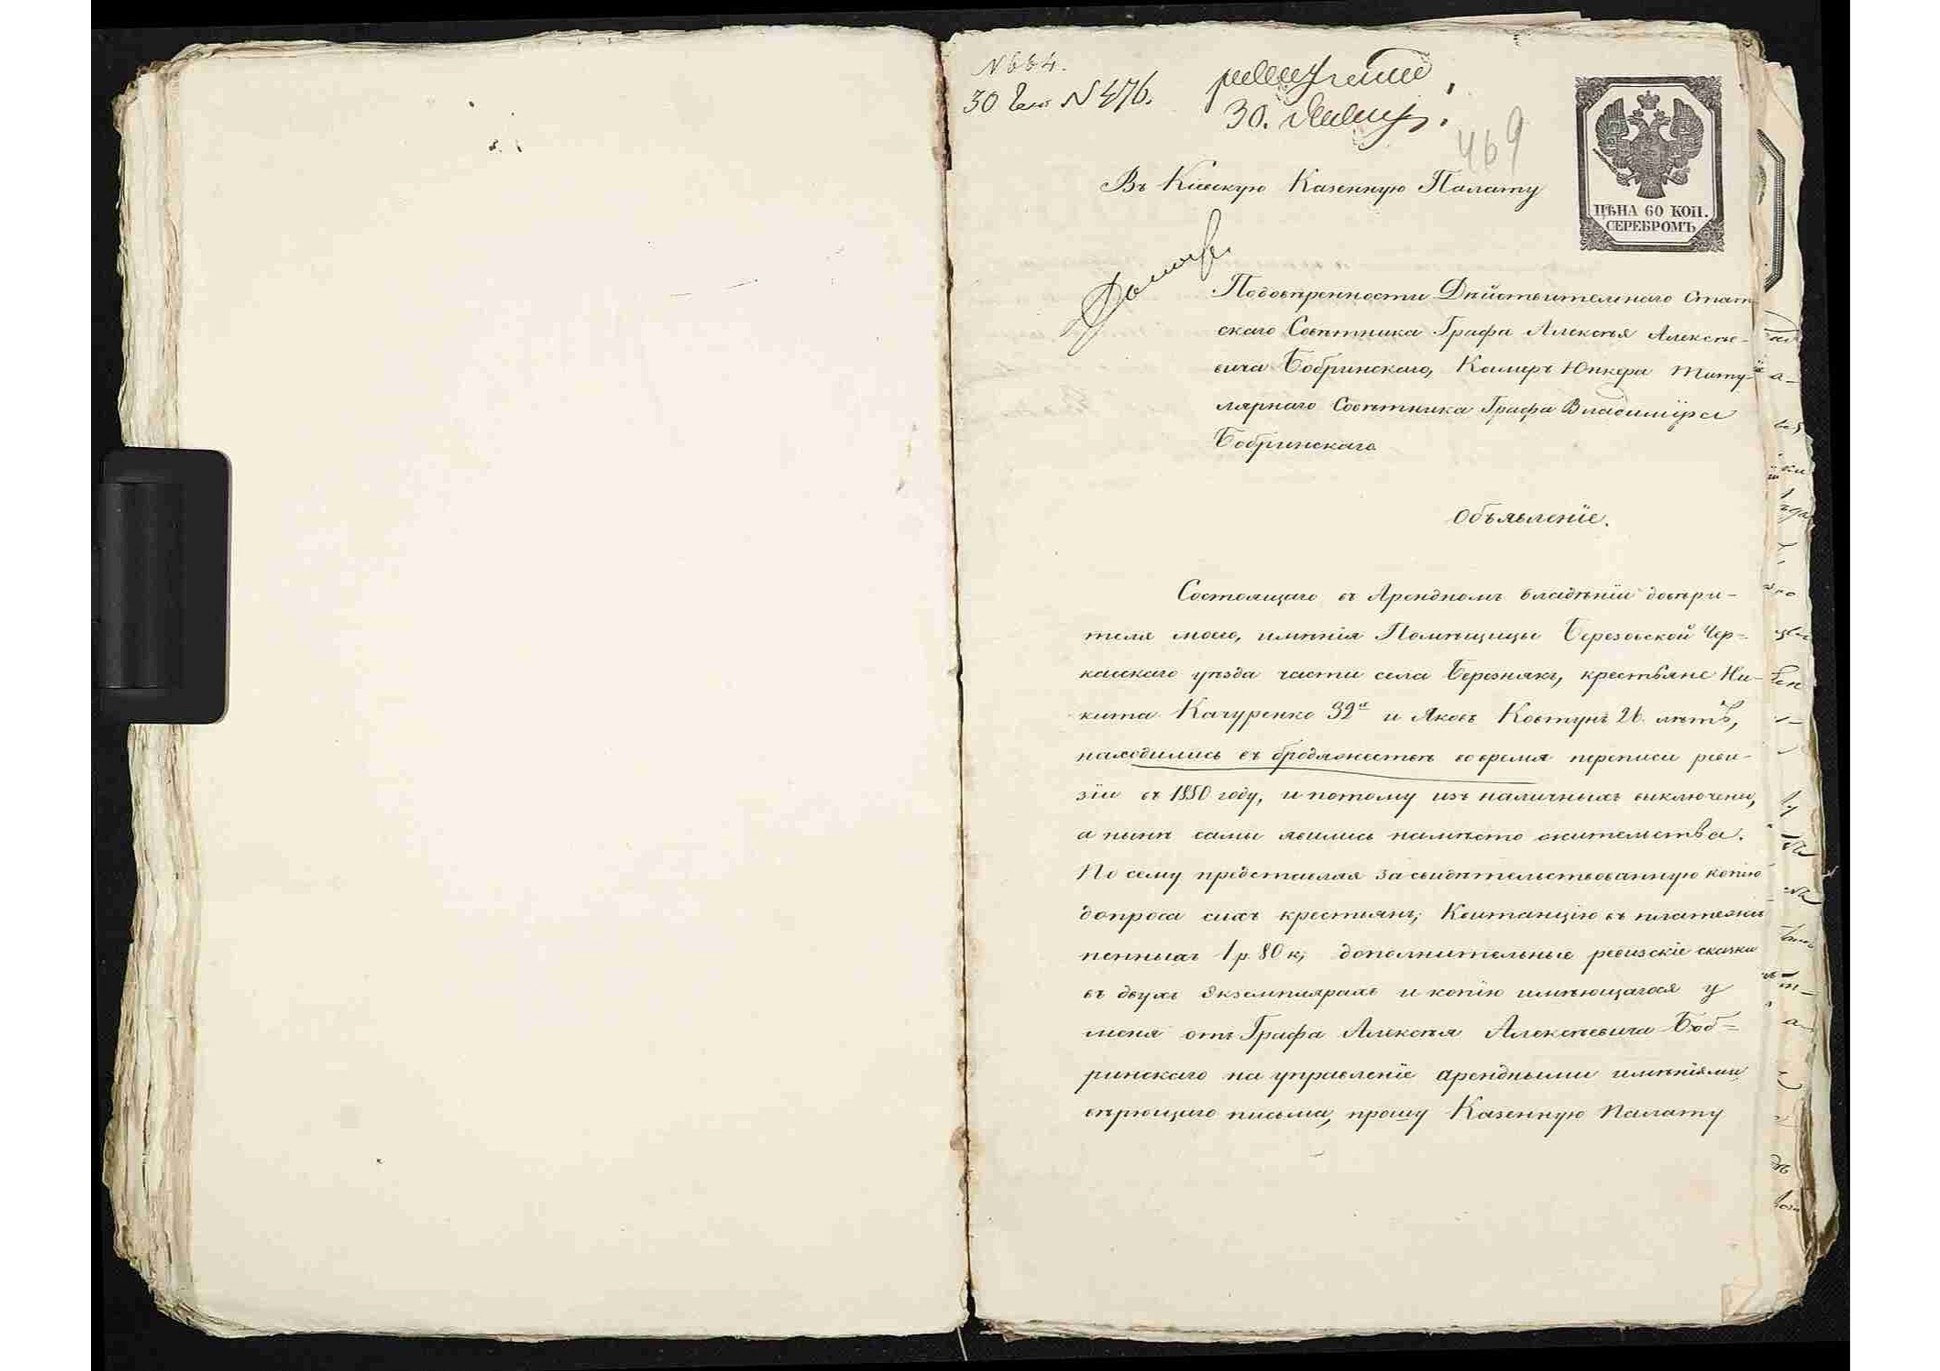 N 664.
30 N 476.
30.
469
Въ Кіевскую Казенную Палату
ЦѢНА 60 КОП.
СЕРЕБРОМЪ
Подовѣренности Дѣйствительнаго Стат
скаго Совѣтника Графа Алексѣя Алексѣе-
вича Бобринскаго, Камеръ Юнкера Титу-
лярнаго Совѣтника Графа Владиміра
Бобринскаго
Объявленіе.
Состоящаго въ Арендномъ владѣніи довѣри-
теля моего, имѣнія Помѣщицы Березовской Чер-
каскаго уѣзда части села Березнякъ, крестьяне Ни-
кита Качуренко 32 и Яковъ Ковтунъ 26 лѣтъ,
находились въ бродяжествѣ вовремя переписи реви-
зіи въ 1850 году, и потому изъ наличныхъ виключены,
а нынѣ сами явились намѣсто жительства.
По сему представляя засвидѣтельствованную копію
допроса сихъ крестьянъ, Квитанцію въ платежѣ
пенныхъ 1 р. 80 к; дополнительные ревизскіе сказки
въ двухъ экземплярахъ и копію имѣющагося у
меня отъ Графа Алексѣя Алексѣевича Боб-
ринскаго на управленіе арендными имѣніями
вѣрющаго письма, прошу Казенную Палату